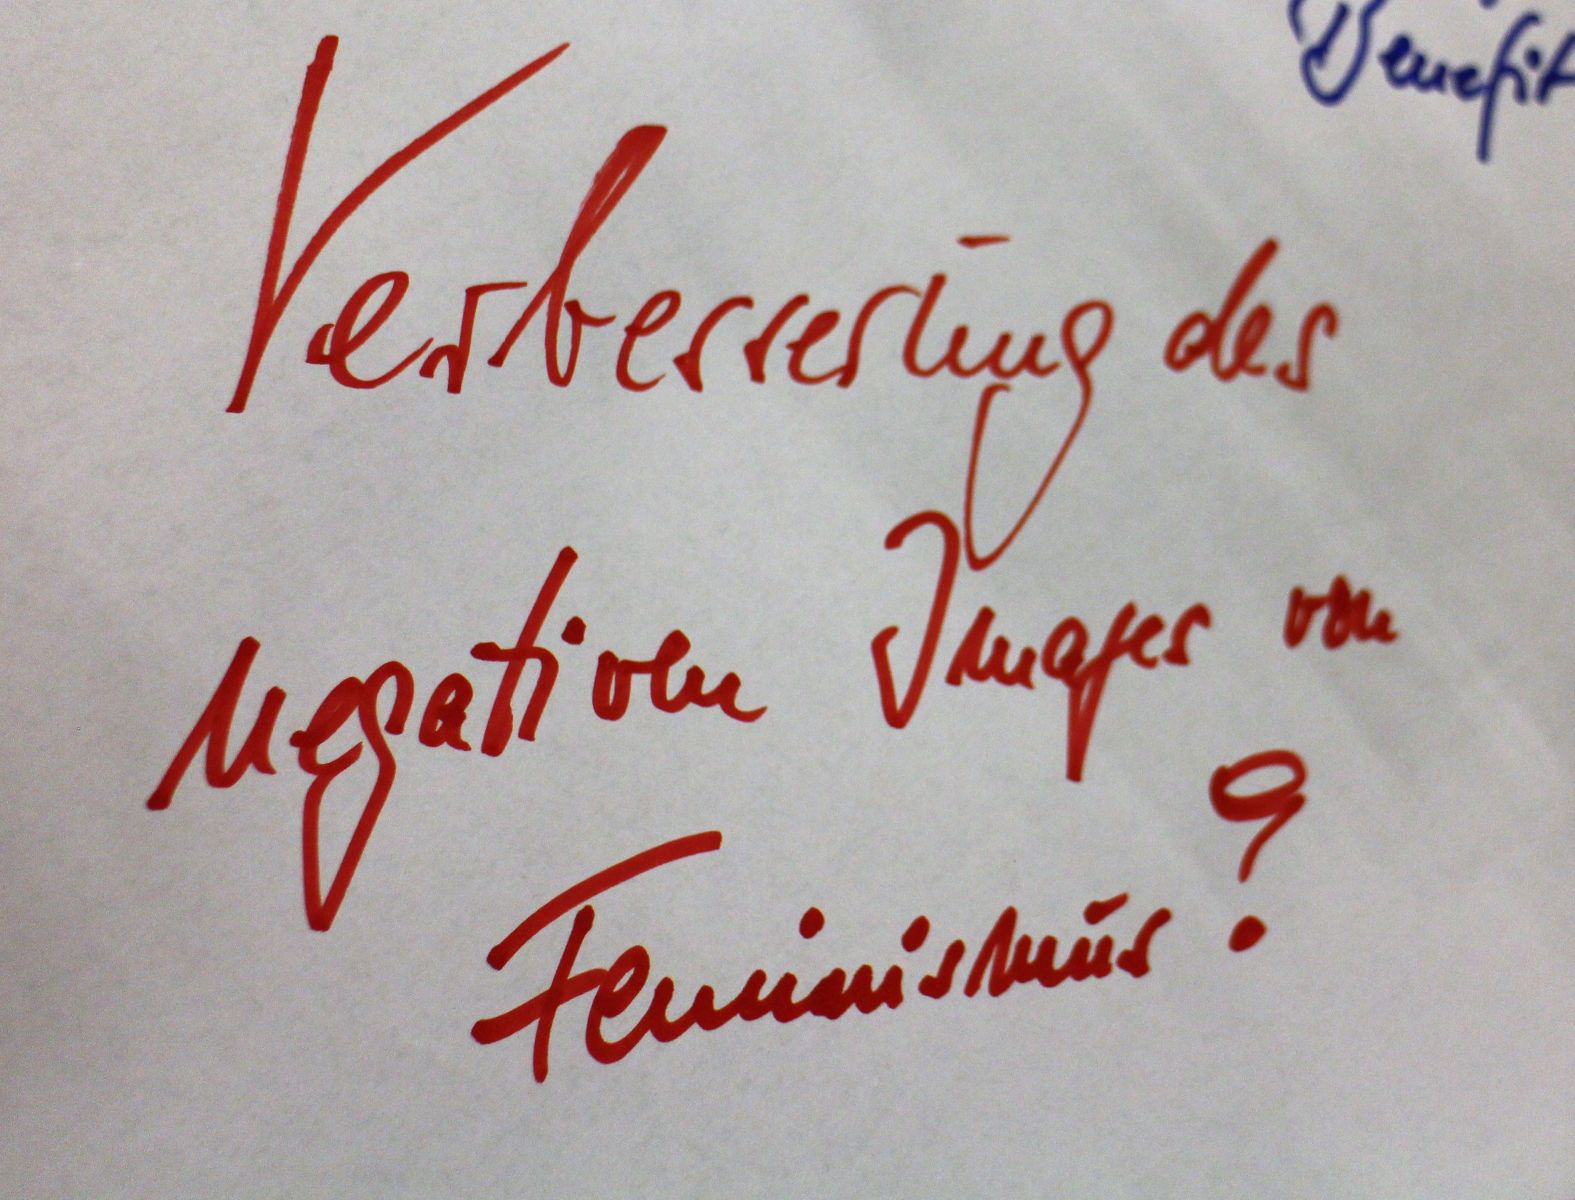 Benefit
Verbesserung des
negativen Images von
Feminismus?